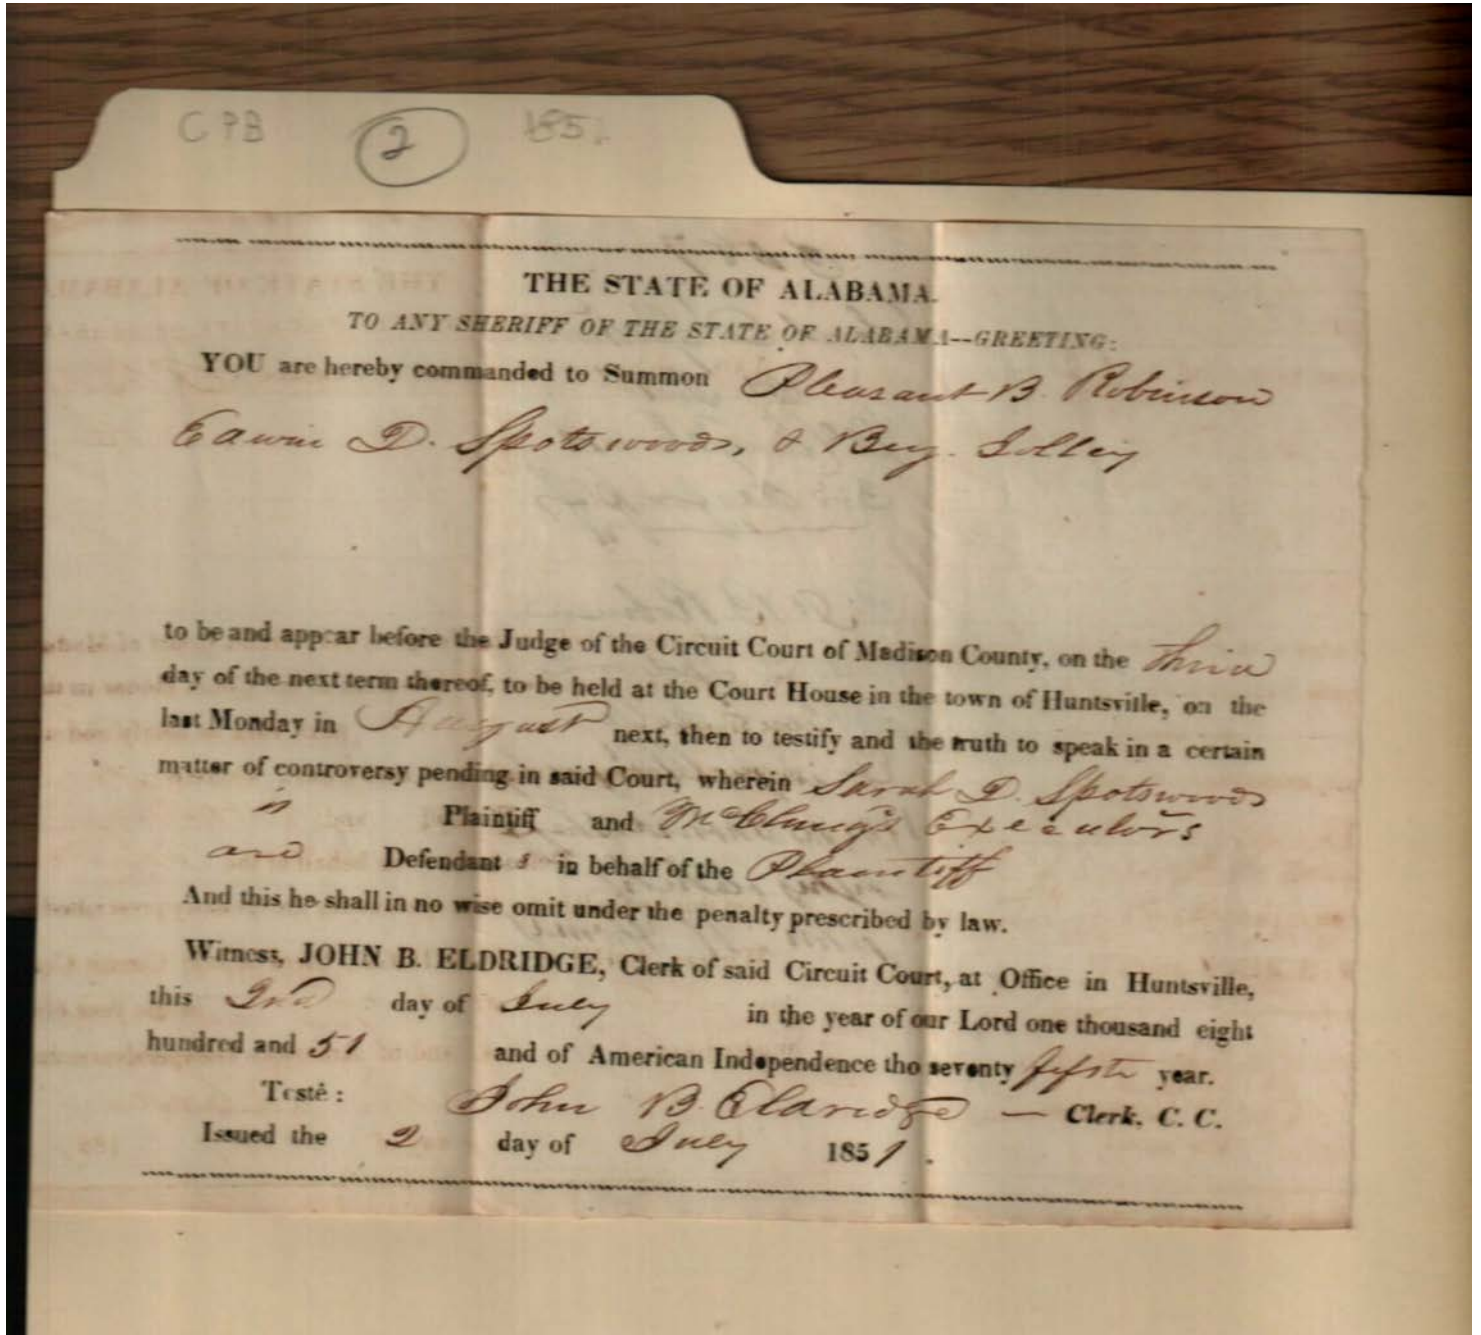 CPB 2 185
THE STATE OF ALABAMA.
TO ANY SHERIFF OF THE STATE OF ALABAMA--GREETING:
YOU are hereby commanded to Summon Pleasant B. Robinson
Edwin D. Spotswood, & Benj. Jolley
to be and appear before the Judge of the Circuit Court of Madison County, on the third
day of the next term thereof, to be held at the Court House in the town of Huntsville, on the
last Monday in August next, then to testify and the truth to speak in a certain
matter of controversy pending in said Court, wherein Sarah D. Spotswood
is Plaintiff and McClung's Executors
are Defendant s in behalf of the Plaintiff
And this he shall in no wise omit under the penalty prescribed by law.
Witness, JOHN B. ELDRIDGE, Clerk of said Circuit Court, at Office in Huntsville,
this 2nd day of July in the year of our Lord one thousand eight
hundred and 51 and of American Independence the seventy fifth year.
Testê:
John B. Eldridge — Clerk, C. C.
Issued the 2 day of July 1851.